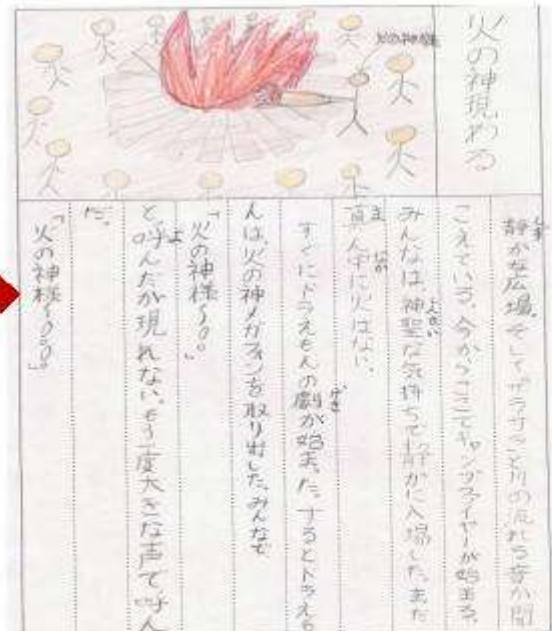 火の神現める
火の神様
静かな広場。そしてザラザラと川の流れる音が聞
こえている。今からここでキャンプファイヤーが始まる。
みんなは神聖な気持ちで静かに入場した。まだ
真ん中に火はない。
すぐにドラえもんの劇が始まった。するとドラえも
んは、火の神メガフォンを取り出した。みんなで
「火の神様〜。」
と、呼んだが現れない。もう一度大きな声で呼ん
だ。
「火の神様〜。」